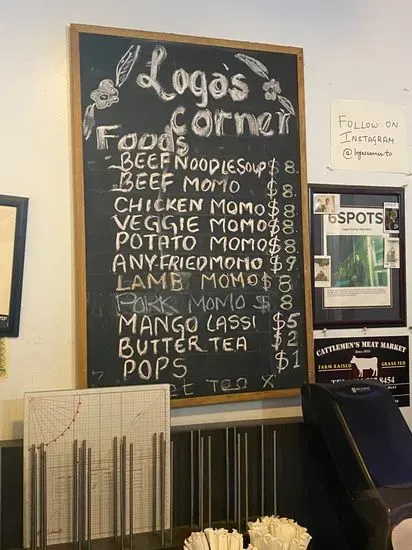 Loga's
corner
Foods
BEEF NOODLE SOUP $8
BEEF MOMO $8
CHICKEN MOMO $8
VEGGIE MOMO $8
POTATO MOMO $8
ANY-FRIED MOMO $9
LAMB MOMO $8
PORK MOMO $8
MANGO LASSI $5
BUTTER TEA $2
POPS $1
FOLLOW ON
INSTAGRAM
@logascornerto
6SPOTS
CATTLEMEN'S MEAT MARKET
FARM RAISED
GRASS FED
8454